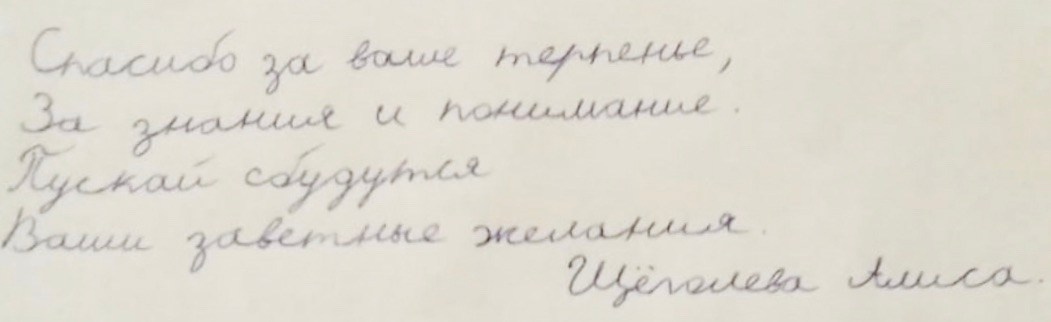 Спасибо за ваше терпенье,
За знания и понимание.
Пускай сбудутся
Ваши заветные желания.
Щёголева Алиса.